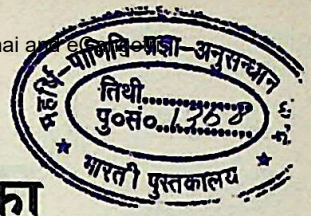 nai and eGangotri
महर्षि-पाणिनि-प्रज्ञा-अनुसन्धान
तिथी..............
पु०सं० 1368
★ भारती पुस्तकालय ★
का